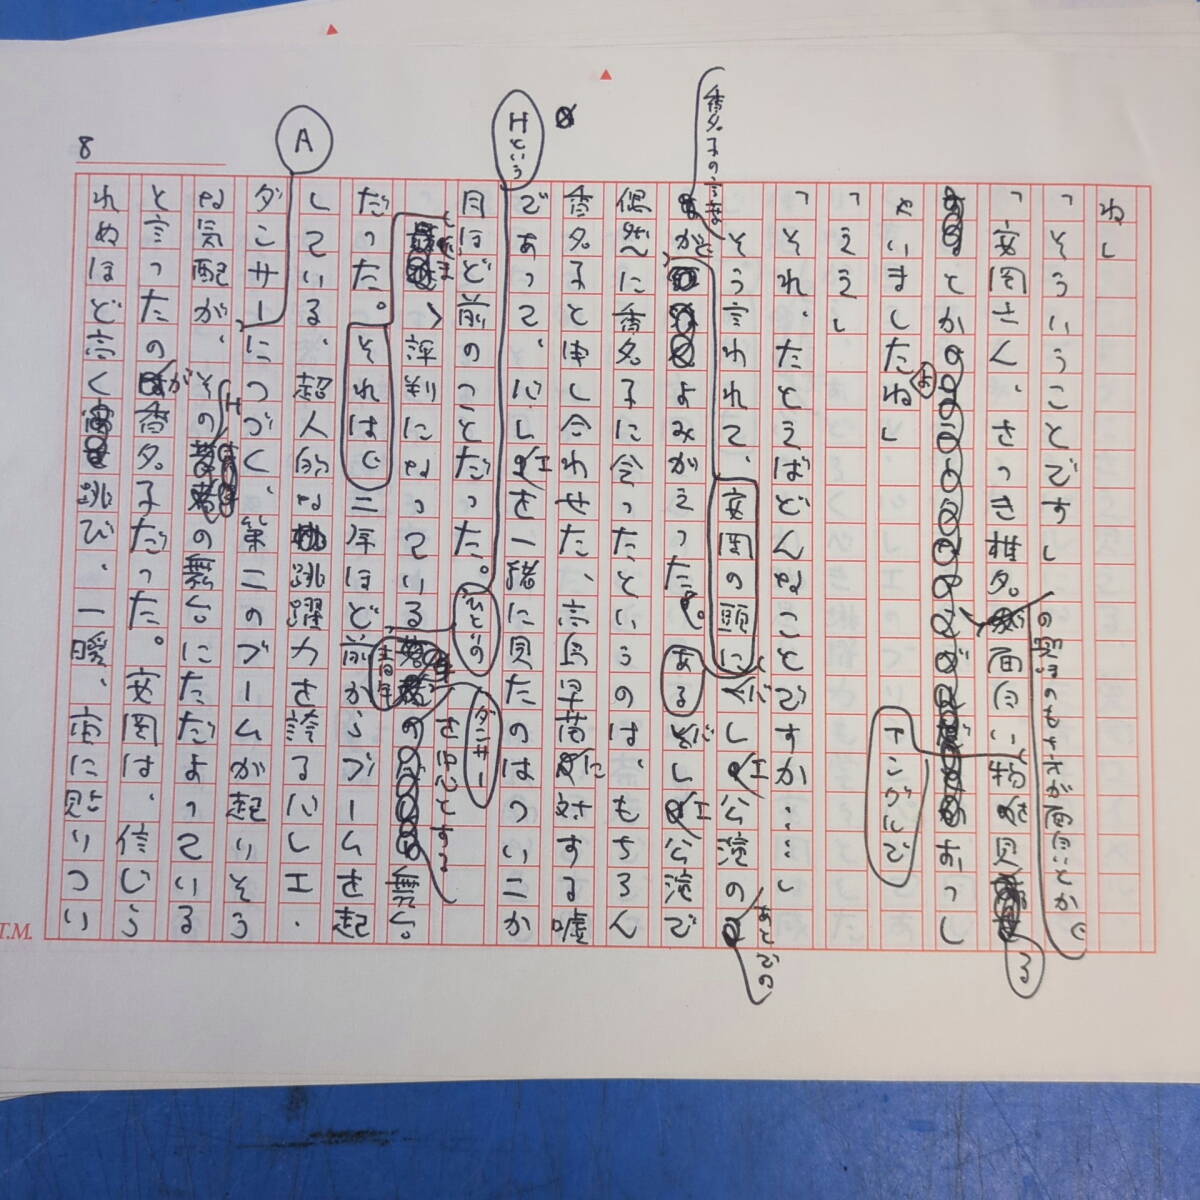 8
ねし
「そういうことですし
の野性のもち方が面白いとか
「安岡さん、さっき推夕面白い物
とか すっし
ゃいましたね」
よ
アングルで
「ええ」
「それ、たとえばどんなことですか……し
そう言われて、安岡の頭に、バレエ公演の
あとでの
香夕子の言葉
がよみがえった。あるバレエ公演で
偶然に香夕子に会ったというのは、もちろん
香夕子と申し合わせた、高島早苗に対する嘘
であって、バレエを一緒に見たのはつい二か
Hという
月ほど前のことだった。
ひとりの
ダンサー
、評判になっている
青年
を中心とする
舞台
だった。それは、二年ほど前からブームを起
している、超人的な跳躍力を誇るバレエ・
A
ダンサーにつづく、第二のブームが起りそう
な気配が、そのHの舞台にただよっている
と言ったのが香夕子だった。安岡は、信じら
れぬほど高く跳び、一瞬、宙に貼りつい
T.M.